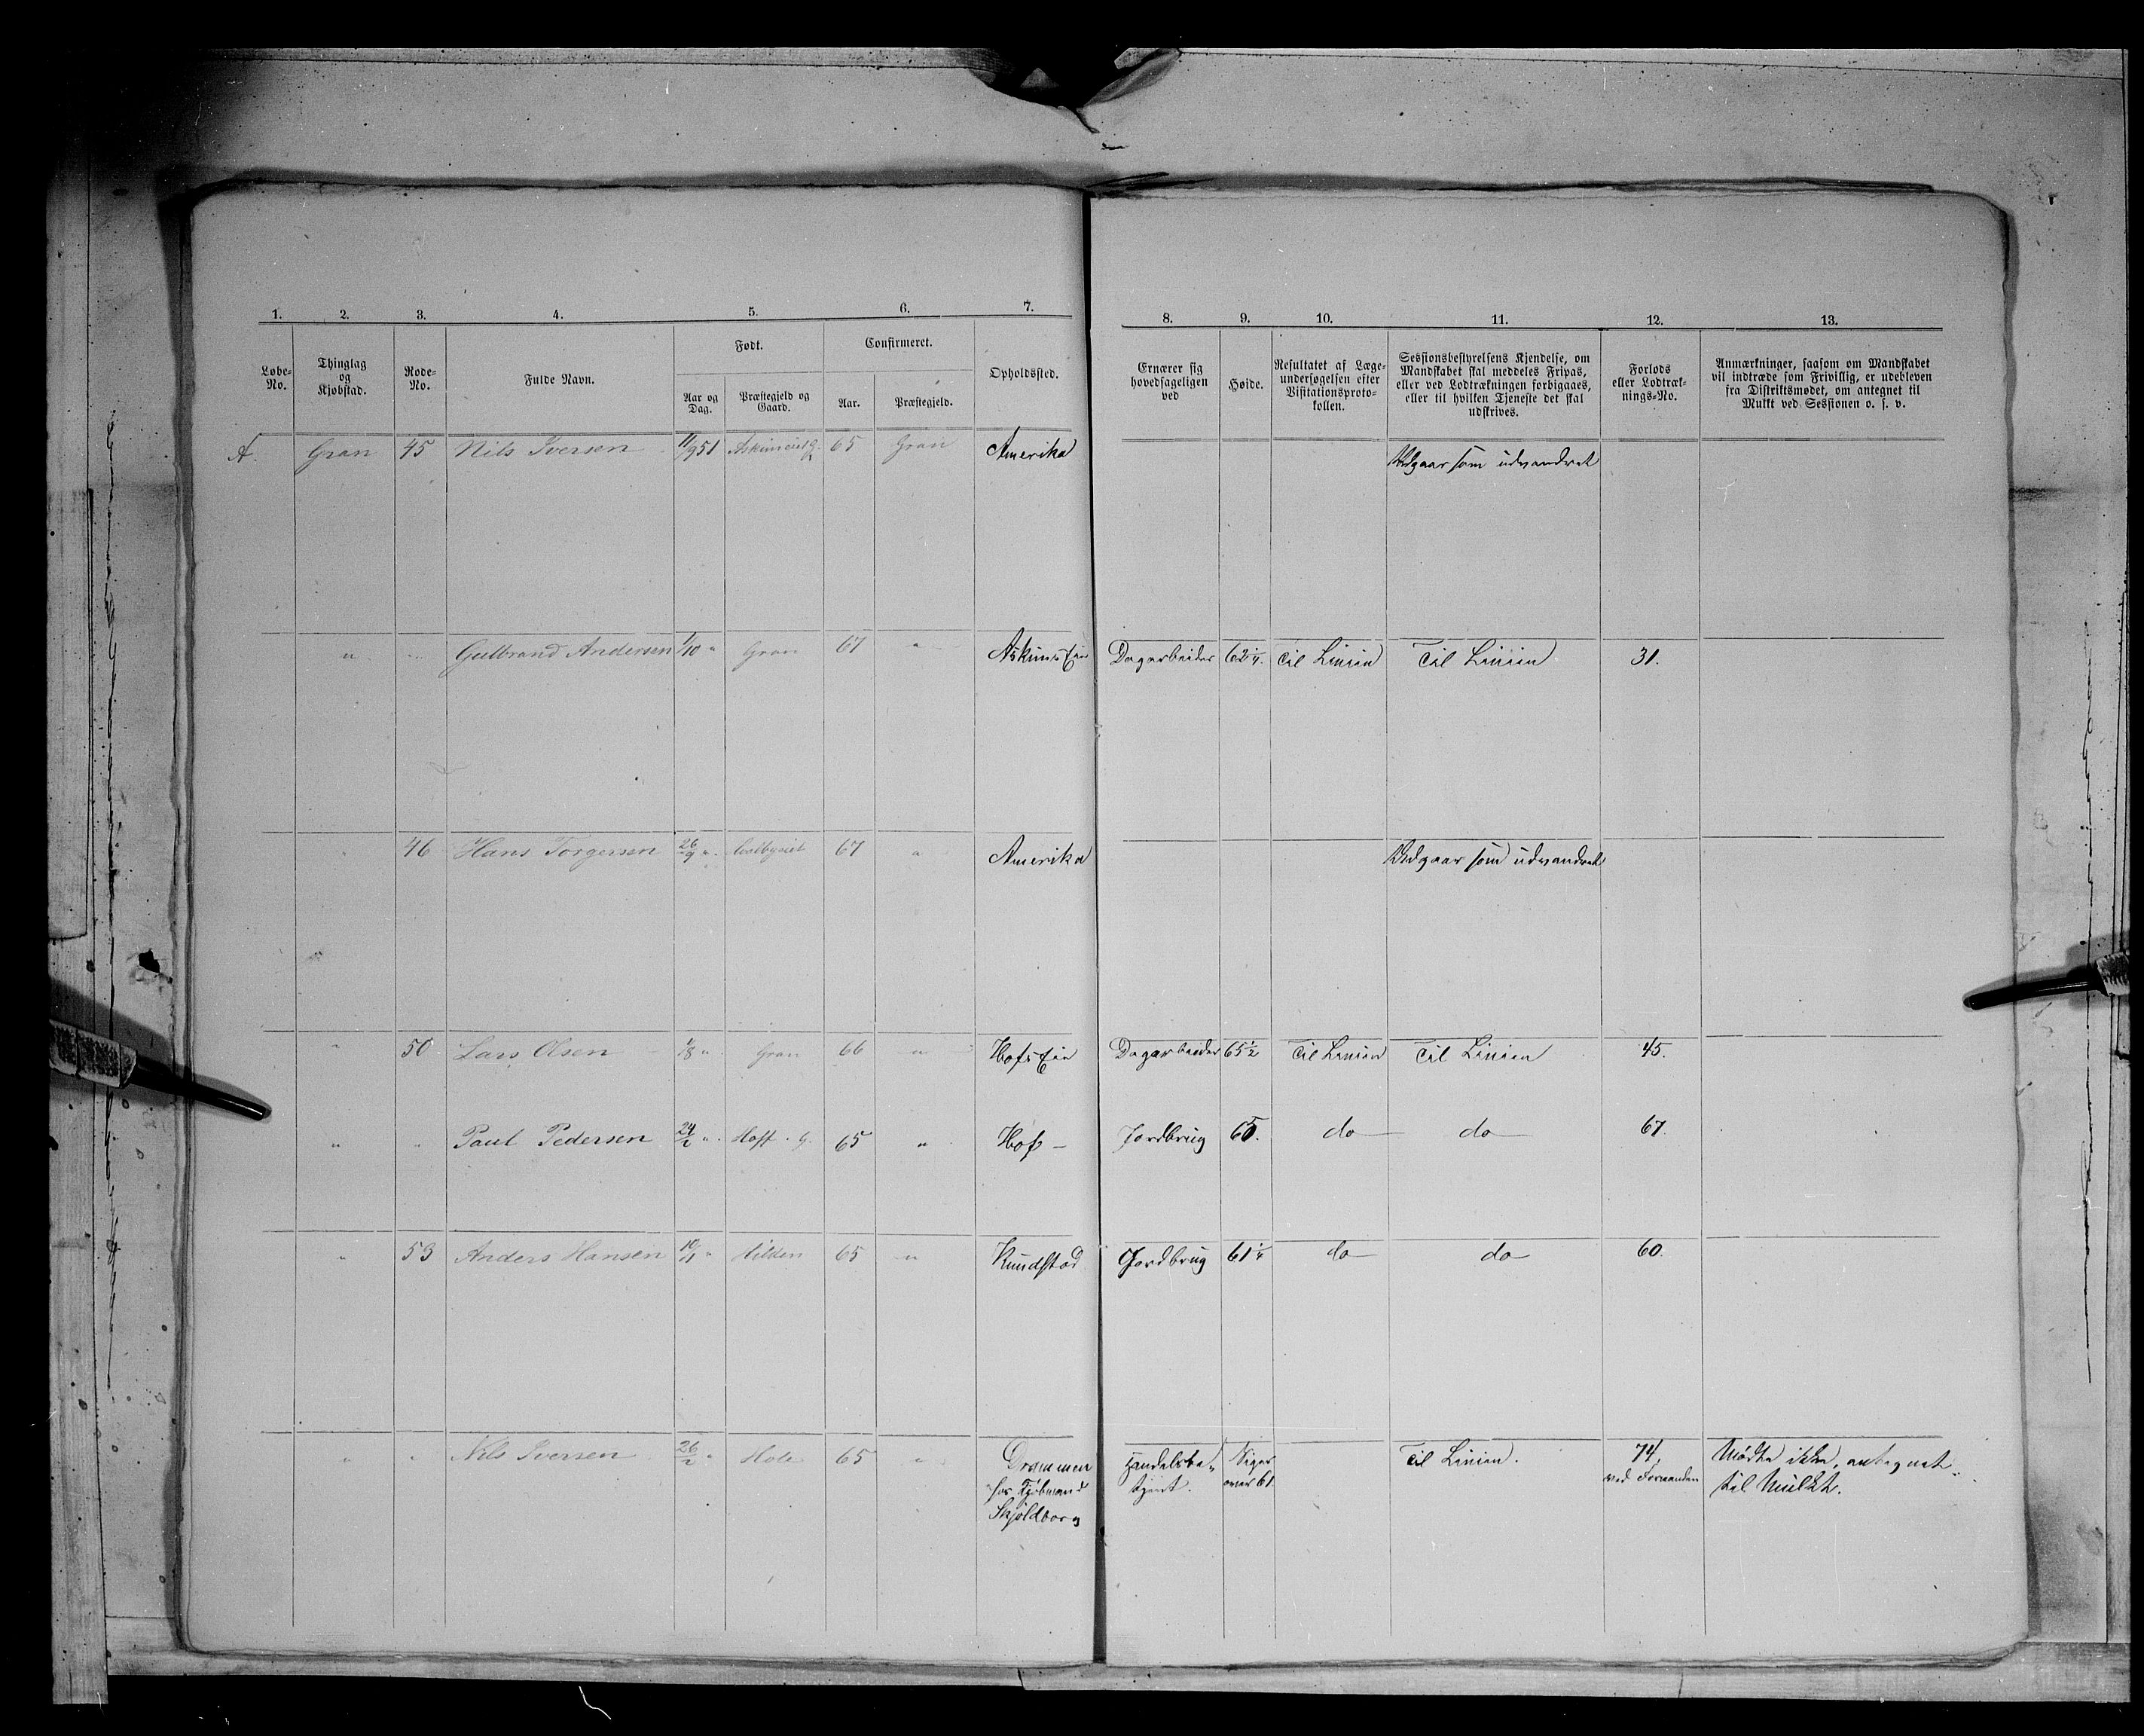 1. 2. 3. 4. 5. 6. 7. 8. 9. 10. 11. 12. 13.
Løbe-
No.
Thinglag
og
Kjøbstad.
Rode-
No.
Fulde Navn.
Født.
Aar og
Dag.
Præstegjeld og
Gaard.
Confirmeret.
Aar.
Præstegjeld.
Opholdssted.
Ernærer sig
hovedsageligen
ved
Høide.
Resultatet af Læge-
undersøgelsen efter
Visitationsproto-
kollen.
Sessionsbestyrelsens Kjendelse, om
Mandskabet skal meddeles Fripas,
eller ved Lodtrækningen forbigaaes,
eller til hvilken Tjeneste det skal
udskrives.
Forlods
eller Lodtræk-
nings-No.
Anmærkninger, saasom om Mandskabet
vil indtræde som Frivillig, er udebleven
fra Distriktsmødet, om antegnet til
Mulkt ved Sessionen o. s. v.
A. Gran 45 Nils Iversen 11/9 51 65 Gran Amerika Udgaar som udvandret
" " Gulbrand Andersen 1/10 " Gran 67 " Askims Eie Dagarbeider 62 1/4. Til Linien Til Linien 31.
" 46 Hans Torgersen 26/9 " 67 " Amerika Udgaar som udvandret
" 50 Lars Olsen 1/8 " Gran 66 " Hofs Eie Dagarbeider 65 1/2 Til Linien Til Linien 45.
" " Paul Pedersen 24/2 " Hoff g. 65 " Hof Jordbrug 65. do do 67.
" 53 Anders Hansen 10/11 " Hilden 65 " Rundstad Jordbrug 61 1/4 do do 60.
" " Nils Iversen 26/2 " Hole 65 " Drammen Handelsbe- Siger Til Linien. 74, Mødte ikke, antegnet
hos Kjøbmand tjent. over 61. ved Formanden til Mulkt.
Skjoldborg